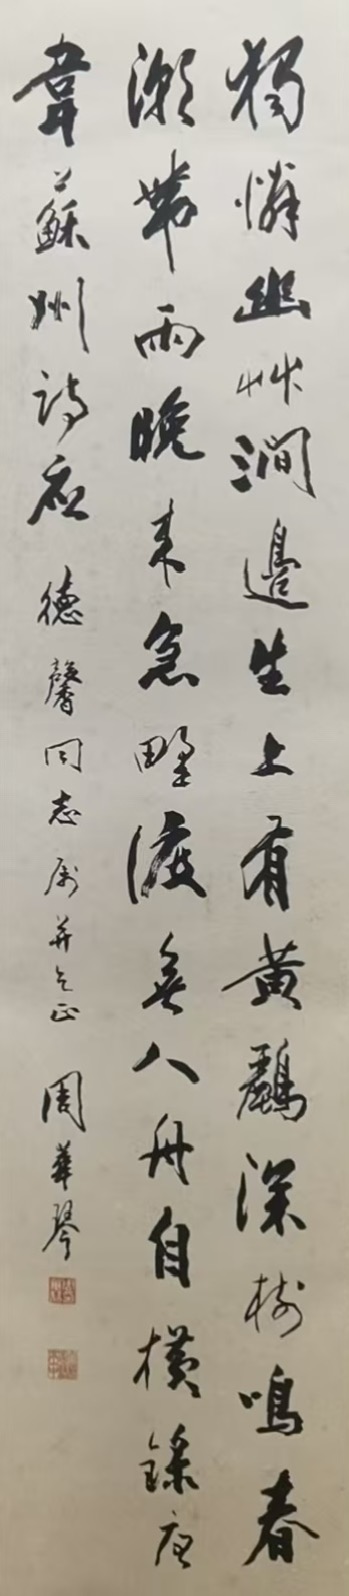 獨憐幽艸澗邊生上有黃鸝深樹鳴春
潮帶雨晚來急野渡無人舟自橫錄唐
韋蘇州詩应德馨同志属并乞正周華琴